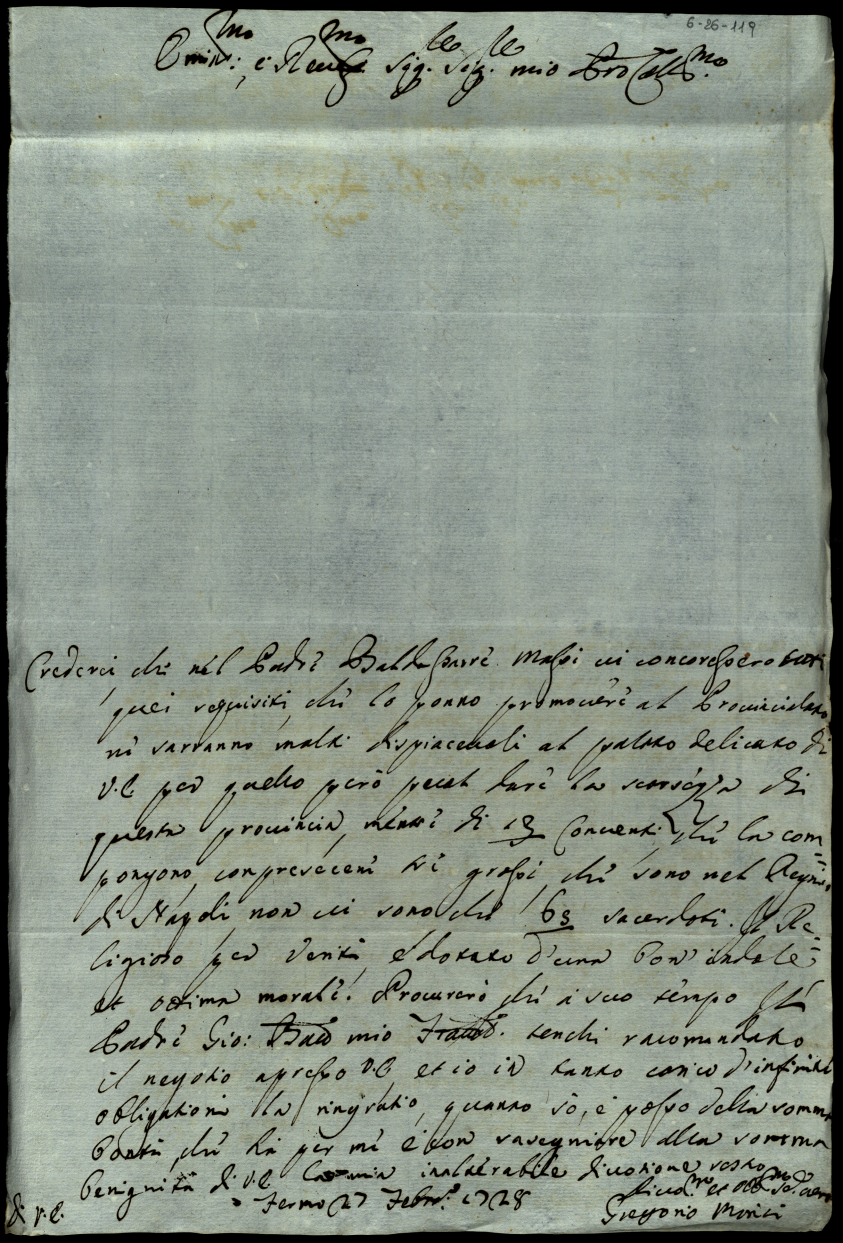 6-26-119
Emin:mo e Reuer:mo Sig.le Sig.le mio Pro Coll:mo
Crederei che nel Padre Baldassarre Massi ui concoressero tutti
quei requisiti, che lo ponno promouere al Prouincialato
ne sarranno molti dispiaceuoli al palato delicato di
V.E. per quello però pecul dure la scarsezza di
questa prouincia, mentre di 13 Conuenti, che la com=
pongono, compreseceni tre grossi, che sono nel Regno
di Napoli, non ui sono che 63 sacerdoti. Il Re=
ligioso per uerità è dotato d'una bon' indole,
et ottima morale. Procurerò che a suo tempo il
Padre Gio: Batt mio Fratel. tenchi racomandato
il negotio apresso V.E. et io in tanto carico d'infinite
obligationi la ringratio, quanto sò, e posso della somma
bontà, che hà per me e con rasegniare alla somma
benignità di V.E. la mia inalterabile diuotione resto
di V.E. Fermo 27 Febr. 1728
Diuo:mo et obb:mo se. uero
Gregorio Morici